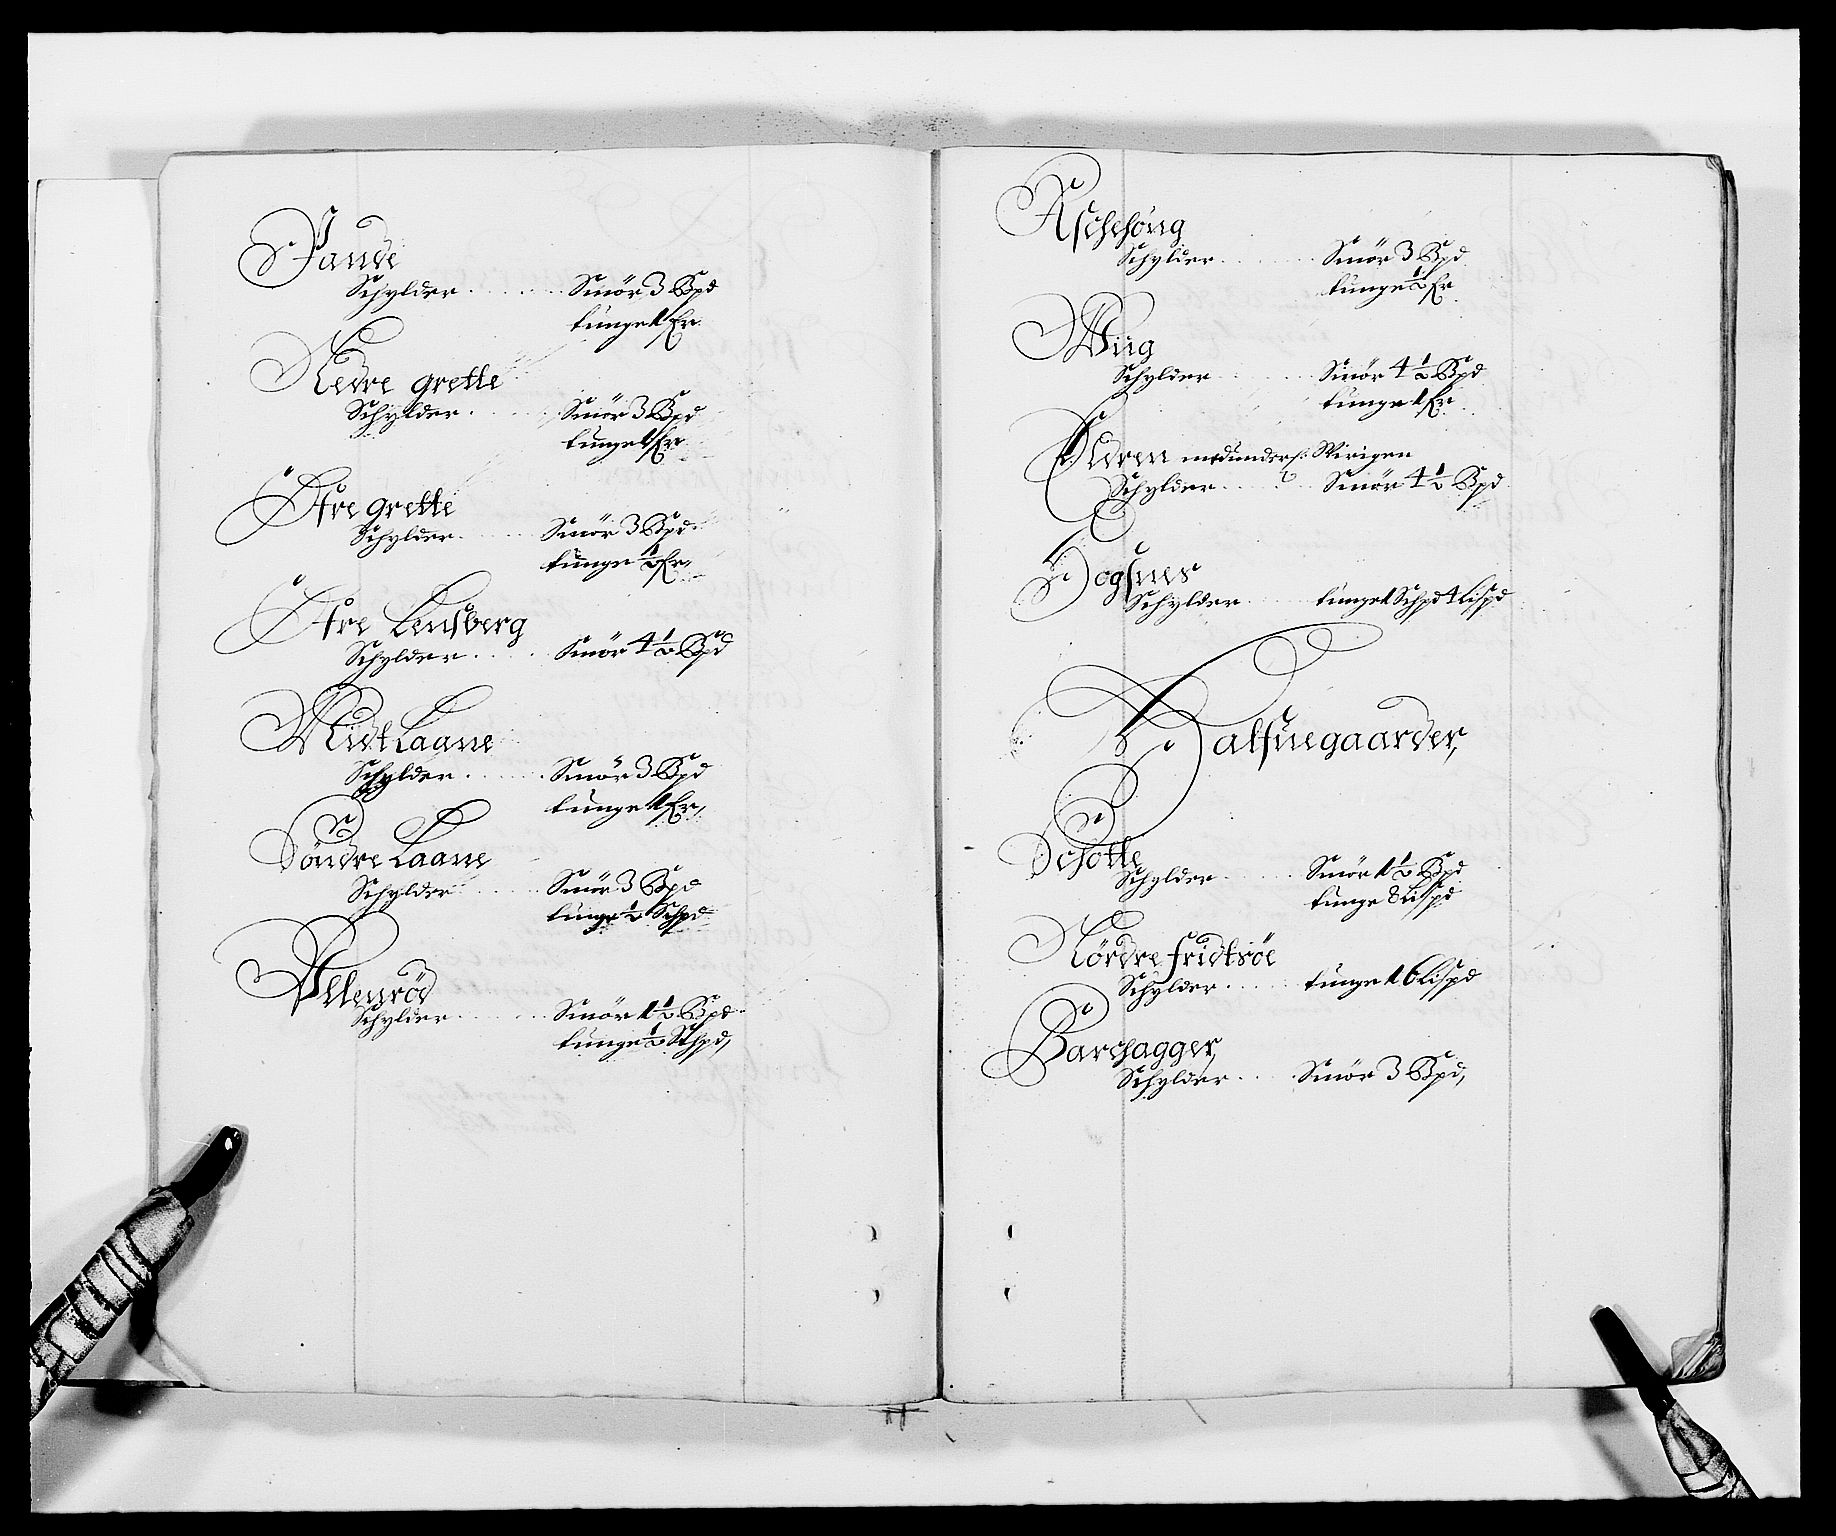 Jande
Schylder . . . . Smör 3 Bpd
tunge 1 Er
Nedre grette
Schylder . . . . Smör 3 Bpd
tunge 1 Er
Öfre grette
Schylder . . . . Smör 3 Bpd
tunge ½ Er,
Öfre Lensberg
Schylder . . . . Smör 4 ½ Bpd
Midt Laane
Schylder . . . . Smör 3 Bpd
tunge 1 Er,
Söndre Laane
Schylder . . . . Smör 3 Bpd
tunge ½ Schpd
Allenröd
Schylder . . . . Smör 1 ½ Bpd
tunge ½ Schpd,
Aschehoug
Schylder . . . . Smör 3 Bpd
tunge ½ Er
Wiig
Schylder . . . . Smör 4 ½ Bpd
tunge 1 Er
Oldren med underl: Wirigen
Schylder . . . . Smör 4 ½ Bpd
Hogsnes
Schylder . . . . tunge 1 Schpd 4 Lispd
Halfuegaarder,
Schotte
Schylder . . . . Smör 1 ½ Bpd
tunge 8 Lispd
Nördre fridtsöe
Schylder . . . . tunge 16 Lispd
Barchagger,
Schylder . . . . Smör 3 Bpd,